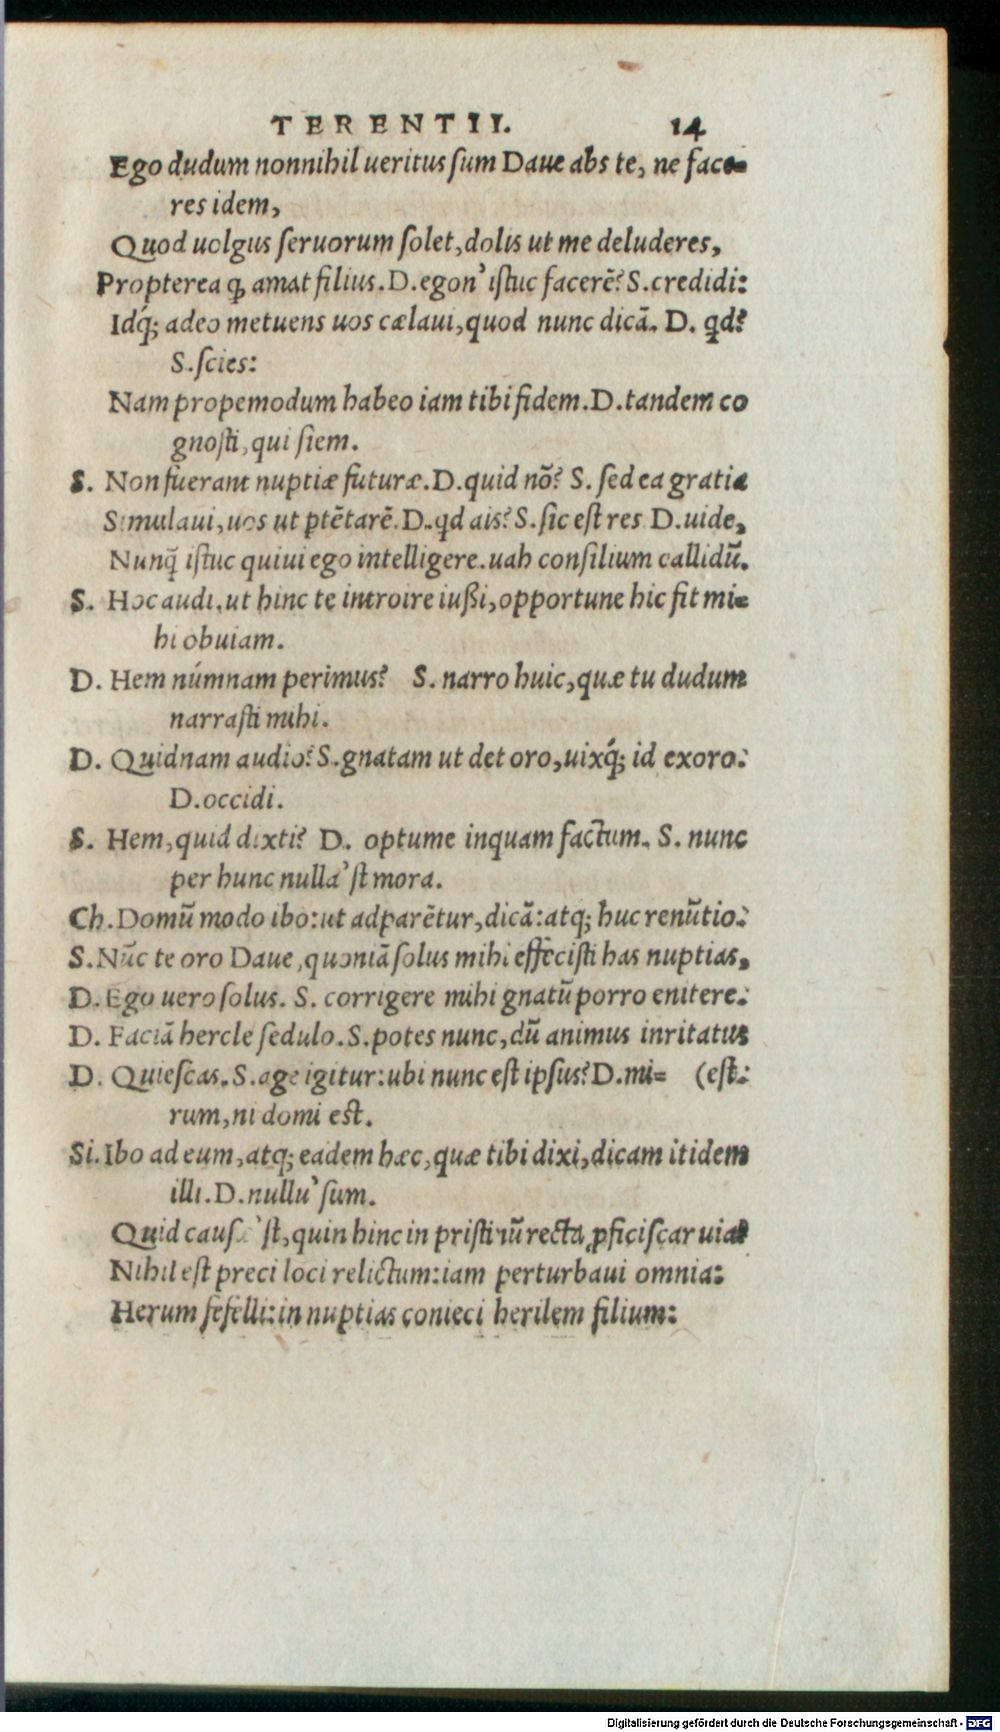 TERENTII. 14
Ego dudum nonnihil ueritus ſum Daue abs te, ne face=
res idem,
Quod uolgus ſeruorum ſolet, dolis ut me deluderes,
Propterea ꝙ amat filius. D. egon' iſtuc facerē? S. credidi:
Idq́; adeo metuens uos cælaui, quod nunc dicā. D. qd?
S. ſcies:
Nam propemodum habeo iam tibi fidem. D. tandem co
gnoſti, qui ſiem.
S. Non fuerant nuptiæ futuræ. D. quid nō? S. ſed ea gratia
Simulaui, uos ut ꝑtētarē. D. qd ais? S. ſic eſt res D. uide,
Nunq̄ iſtuc quiui ego intelligere. uah conſilium callidū.
S. Hoc audi, ut hinc te introire iußi, opportune hic fit mi=
hi obuiam.
D. Hem númnam perimus? S. narro huic, quæ tu dudum
narraſti mihi.
D. Quidnam audio? S. gnatam ut det oro, uixq́; id exoro:
D. occidi.
S. Hem, quid dixti? D. optume inquam factum. S. nunc
per hunc nulla'ſt mora.
Ch. Domū modo ibo: ut adparētur, dicā: atq; huc renūtio:
S. Nūc te oro Daue, quoniā ſolus mihi effeciſti has nuptias,
D. Ego uero ſolus. S. corrigere mihi gnatū porro enitere:
D. Faciā hercle ſedulo. S. potes nunc, dū animus inritatus
D. Quieſcas. S. age igitur: ubi nunc eſt ipſus? D. mi= (eſt:
rum, ni domi eſt.
Si. Ibo ad eum, atq; eadem hæc, quæ tibi dixi, dicam itidem
illi. D. nullu' ſum.
Quid cauſæ'ſt, quin hinc in priſtinū recta ꝓficiſcar uia?
Nihil eſt preci loci relictum: iam perturbaui omnia:
Herum fefelli: in nuptias conieci herilem filium:
Digitalisierung gefördert durch die Deutsche Forschungsgemeinschaft - DFG